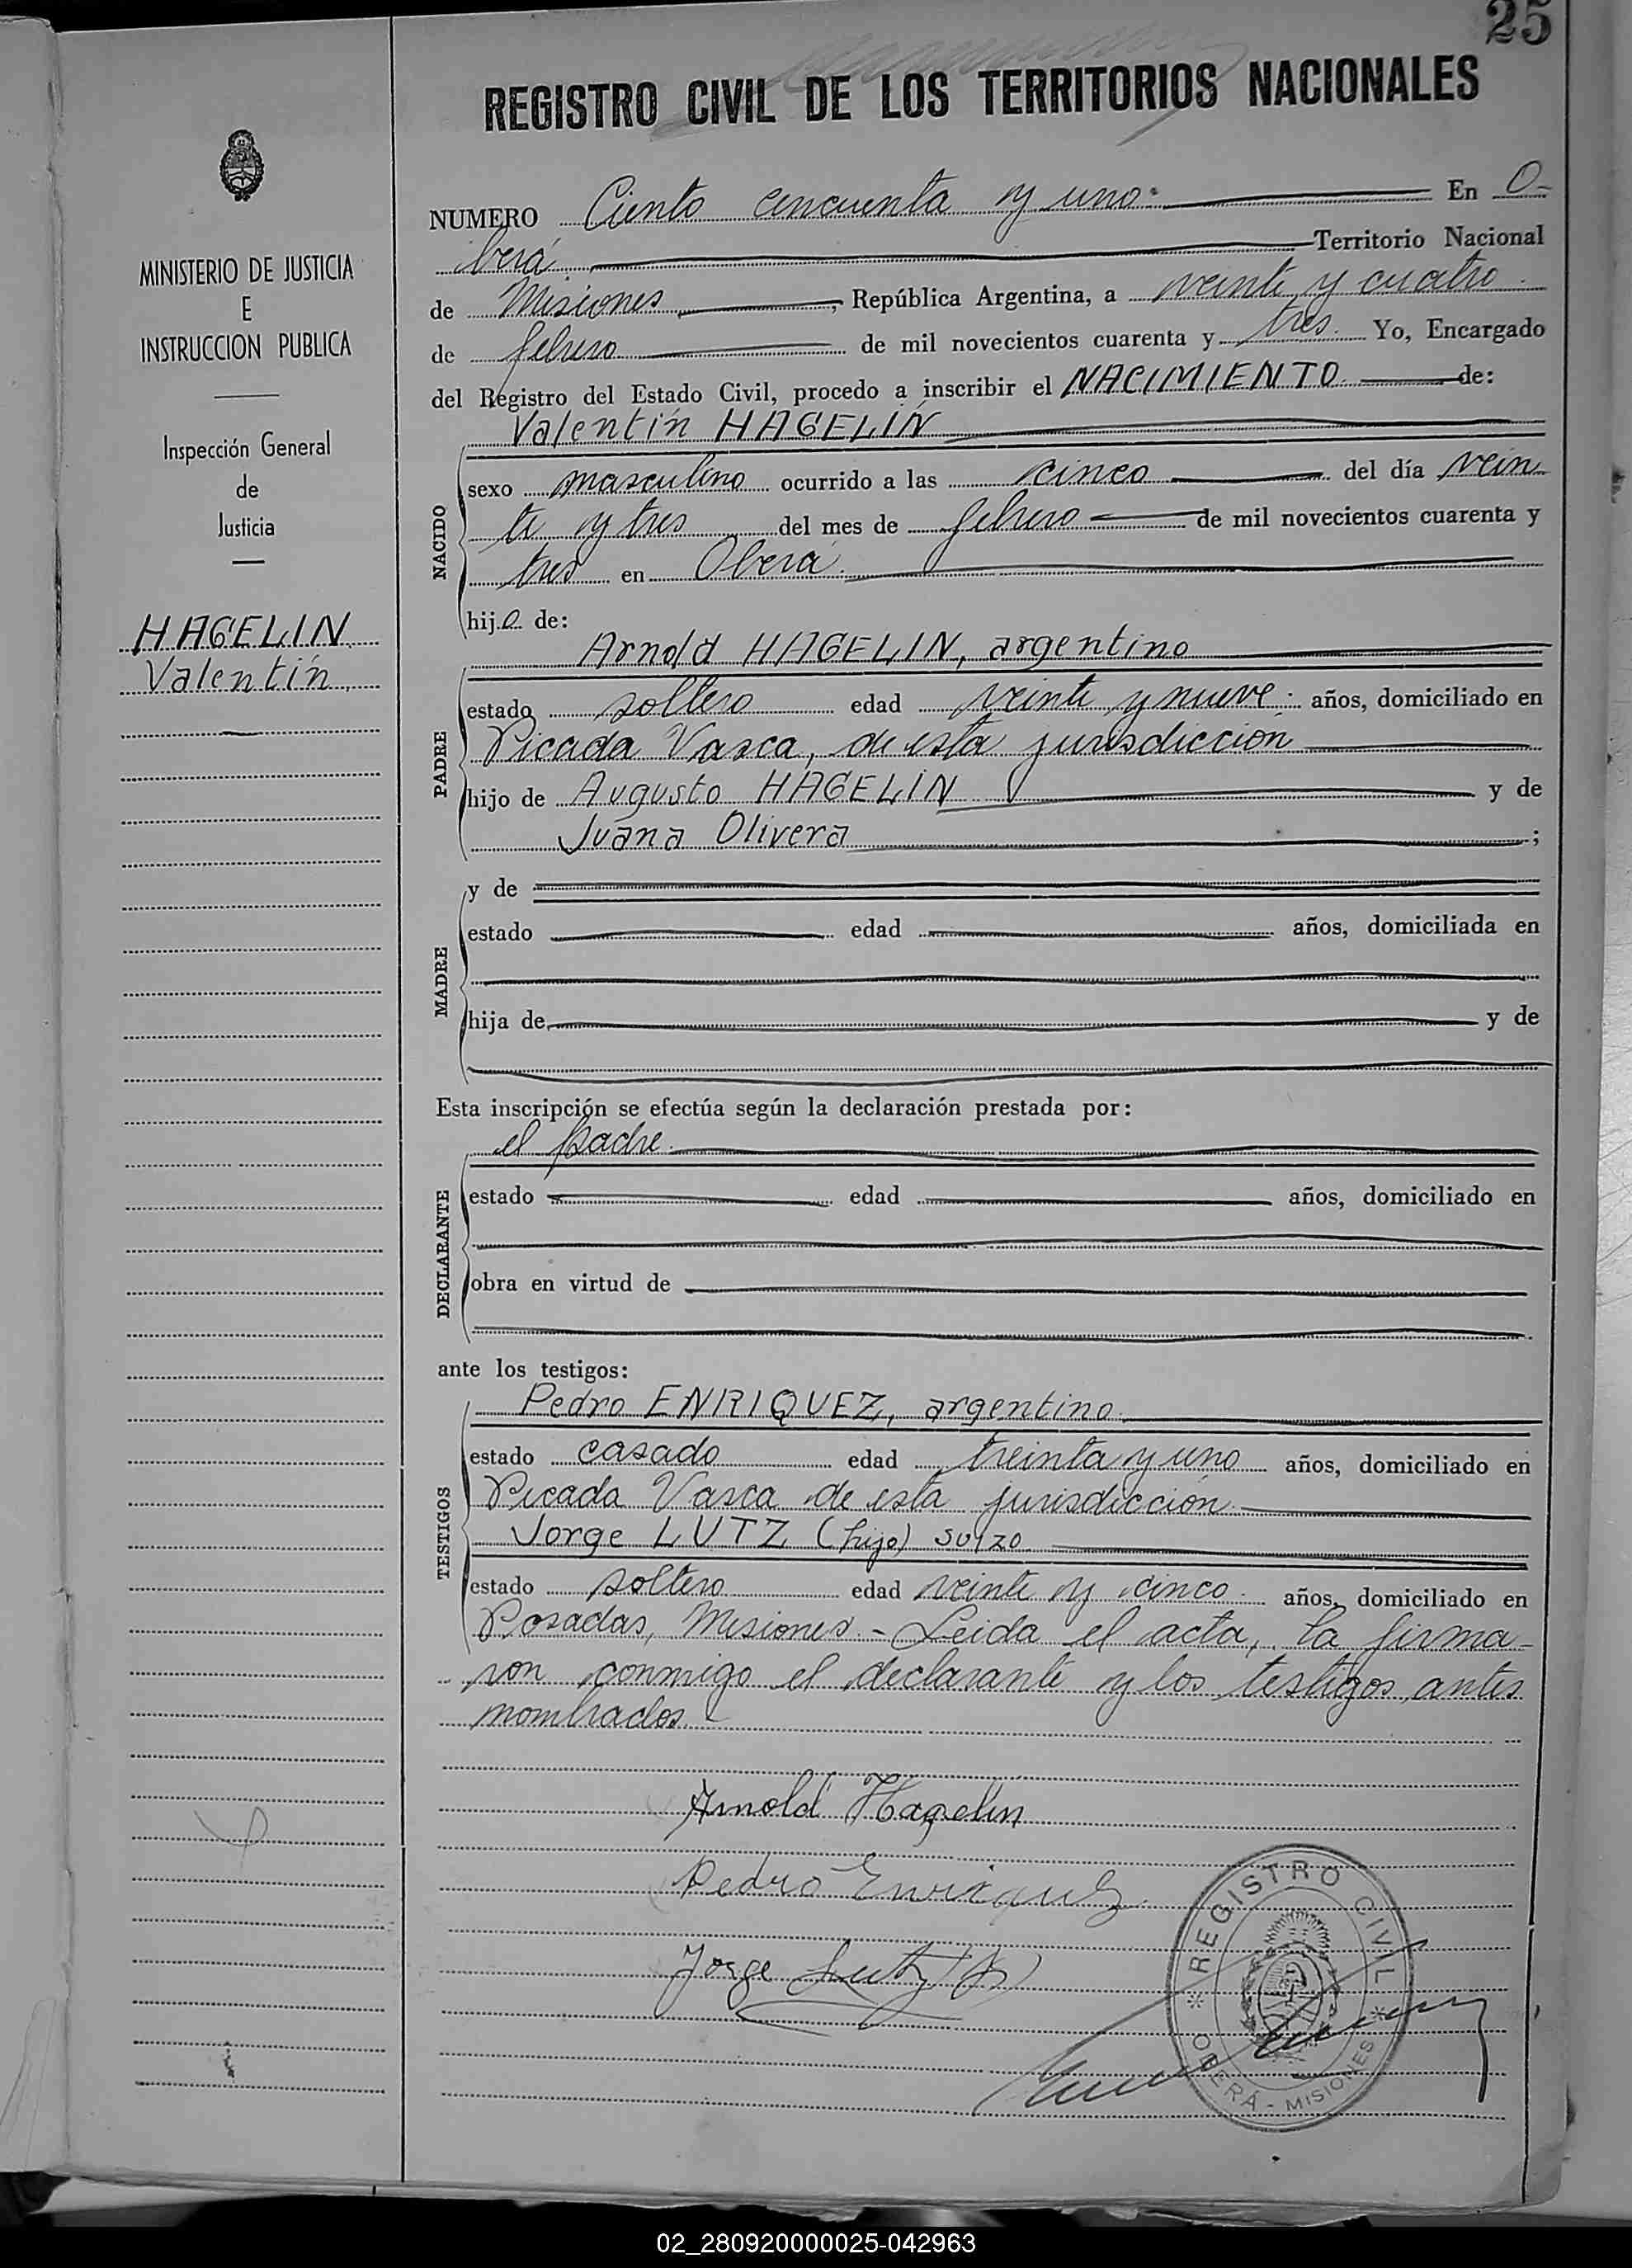 25
REGISTRO CIVIL DE LOS TERRITORIOS NACIONALES
MINISTERIO DE JUSTICIA
E
INSTRUCCION PUBLICA
Inspección General
de
Justicia
HAGELIN
Valentín
NUMERO Ciento cincuenta y uno. En O-
berá Territorio Nacional
de Misiones, República Argentina, a veinte y cuatro
de febrero de mil novecientos cuarenta y tres. Yo, Encargado
del Registro del Estado Civil, procedo a inscribir el NACIMIENTO de:
Valentín HAGELIN
NACIDO
sexo masculino ocurrido a las cinco del día vein
te y tres del mes de febrero de mil novecientos cuarenta y
tres en Oberá.
hijo de:
Arnold HAGELIN, argentino
PADRE
estado soltero edad veinte y nueve. años, domiciliado en
Picada Vasca, de esta jurisdicción
hijo de Augusto HAGELIN y de
Juana Olivera ;
MADRE
y de
estado edad años, domiciliada en
hija de y de
Esta inscripción se efectúa según la declaración prestada por:
el padre.
DECLARANTE
estado edad años, domiciliado en
obra en virtud de
ante los testigos:
Pedro ENRIQUEZ, argentino.
TESTIGOS
estado casado edad treinta y uno años, domiciliado en
Picada Vasca de esta jurisdicción.
Jorge LUTZ (hijo) suizo
estado soltero edad veinte y cinco. años, domiciliado en
Posadas, Misiones.- Leida el acta, la firma-
ron conmigo el declarante y los testigos antes
nombrados.-
Arnold Hagelin
Pedro Enriquez
Jorge Lutz (h)
REGISTRO CIVIL
OBERÁ - MISIONES
02_280920000025-042963